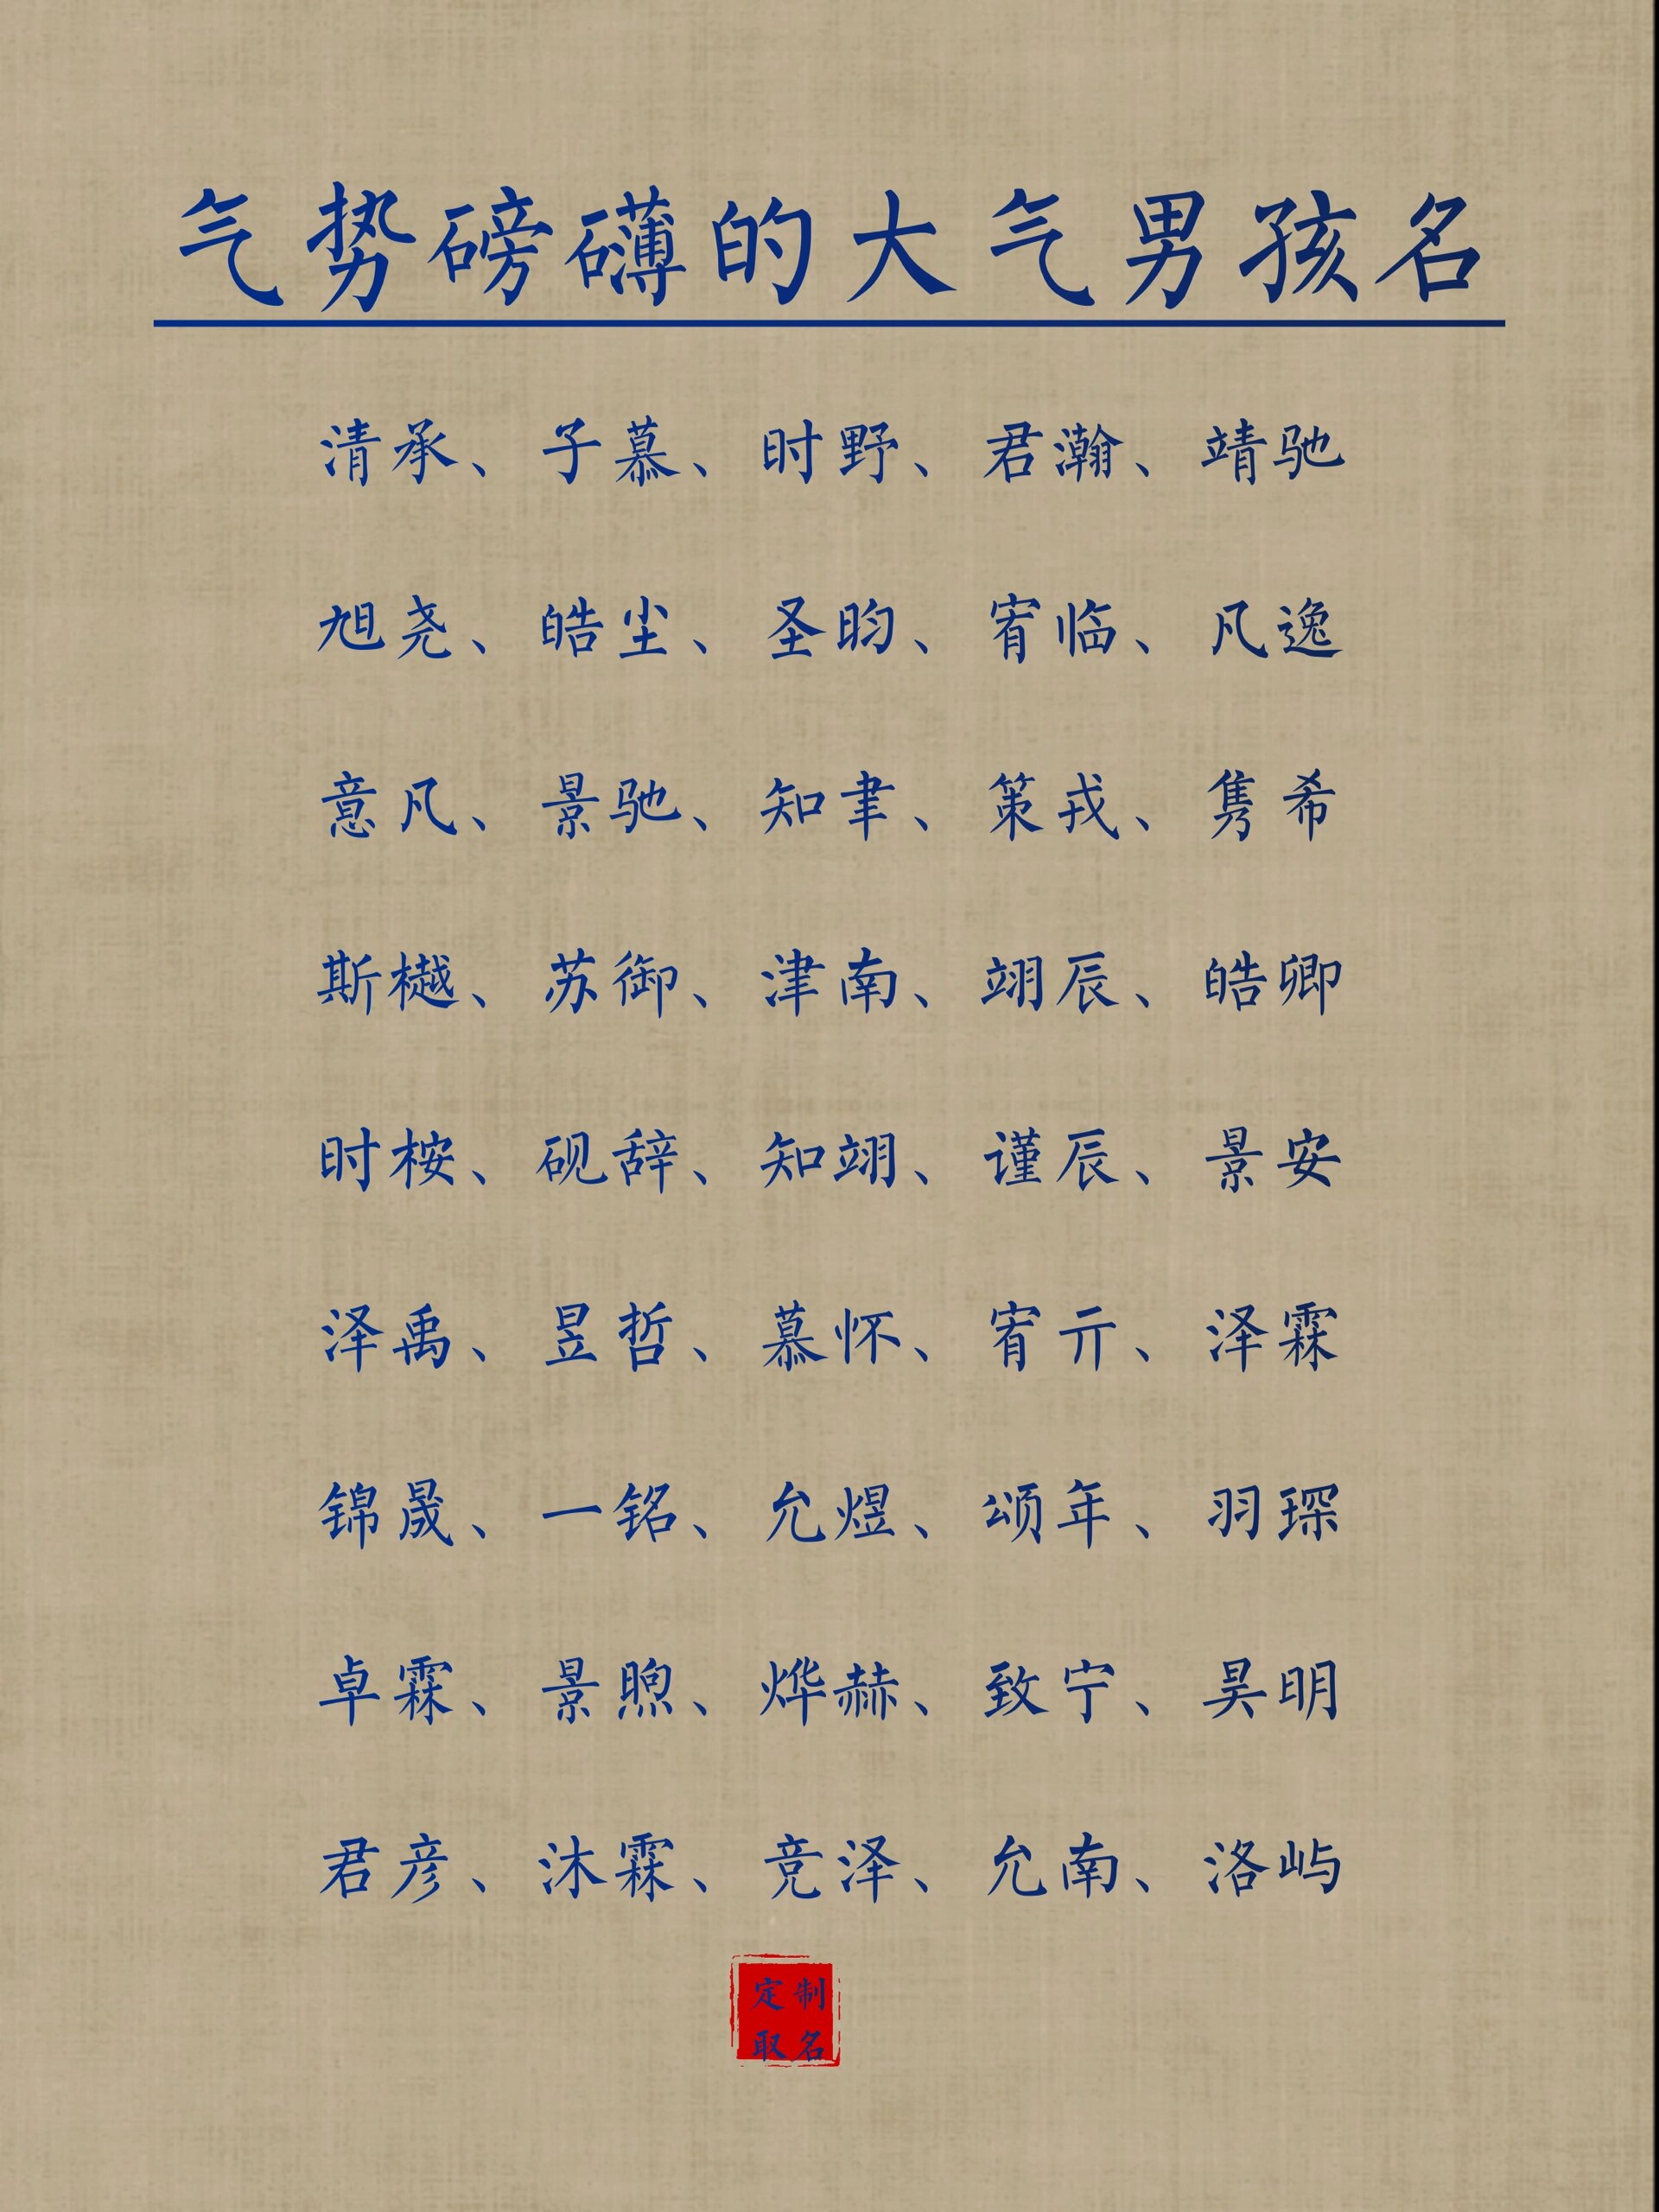 气势磅礴的大气男孩名
清承、子慕、时野、君瀚、靖驰
旭尧、皓尘、圣昀、宥临、凡逸
意凡、景驰、知聿、策戎、隽希
斯樾、苏御、津南、翊辰、皓卿
时桉、砚辞、知翊、谨辰、景安
泽禹、昱哲、慕怀、宥亓、泽霖
锦晟、一铭、允煜、颂年、羽琛
卓霖、景煦、烨赫、致宁、昊明
君彦、沐霖、竞泽、允南、洛屿
定制
取名